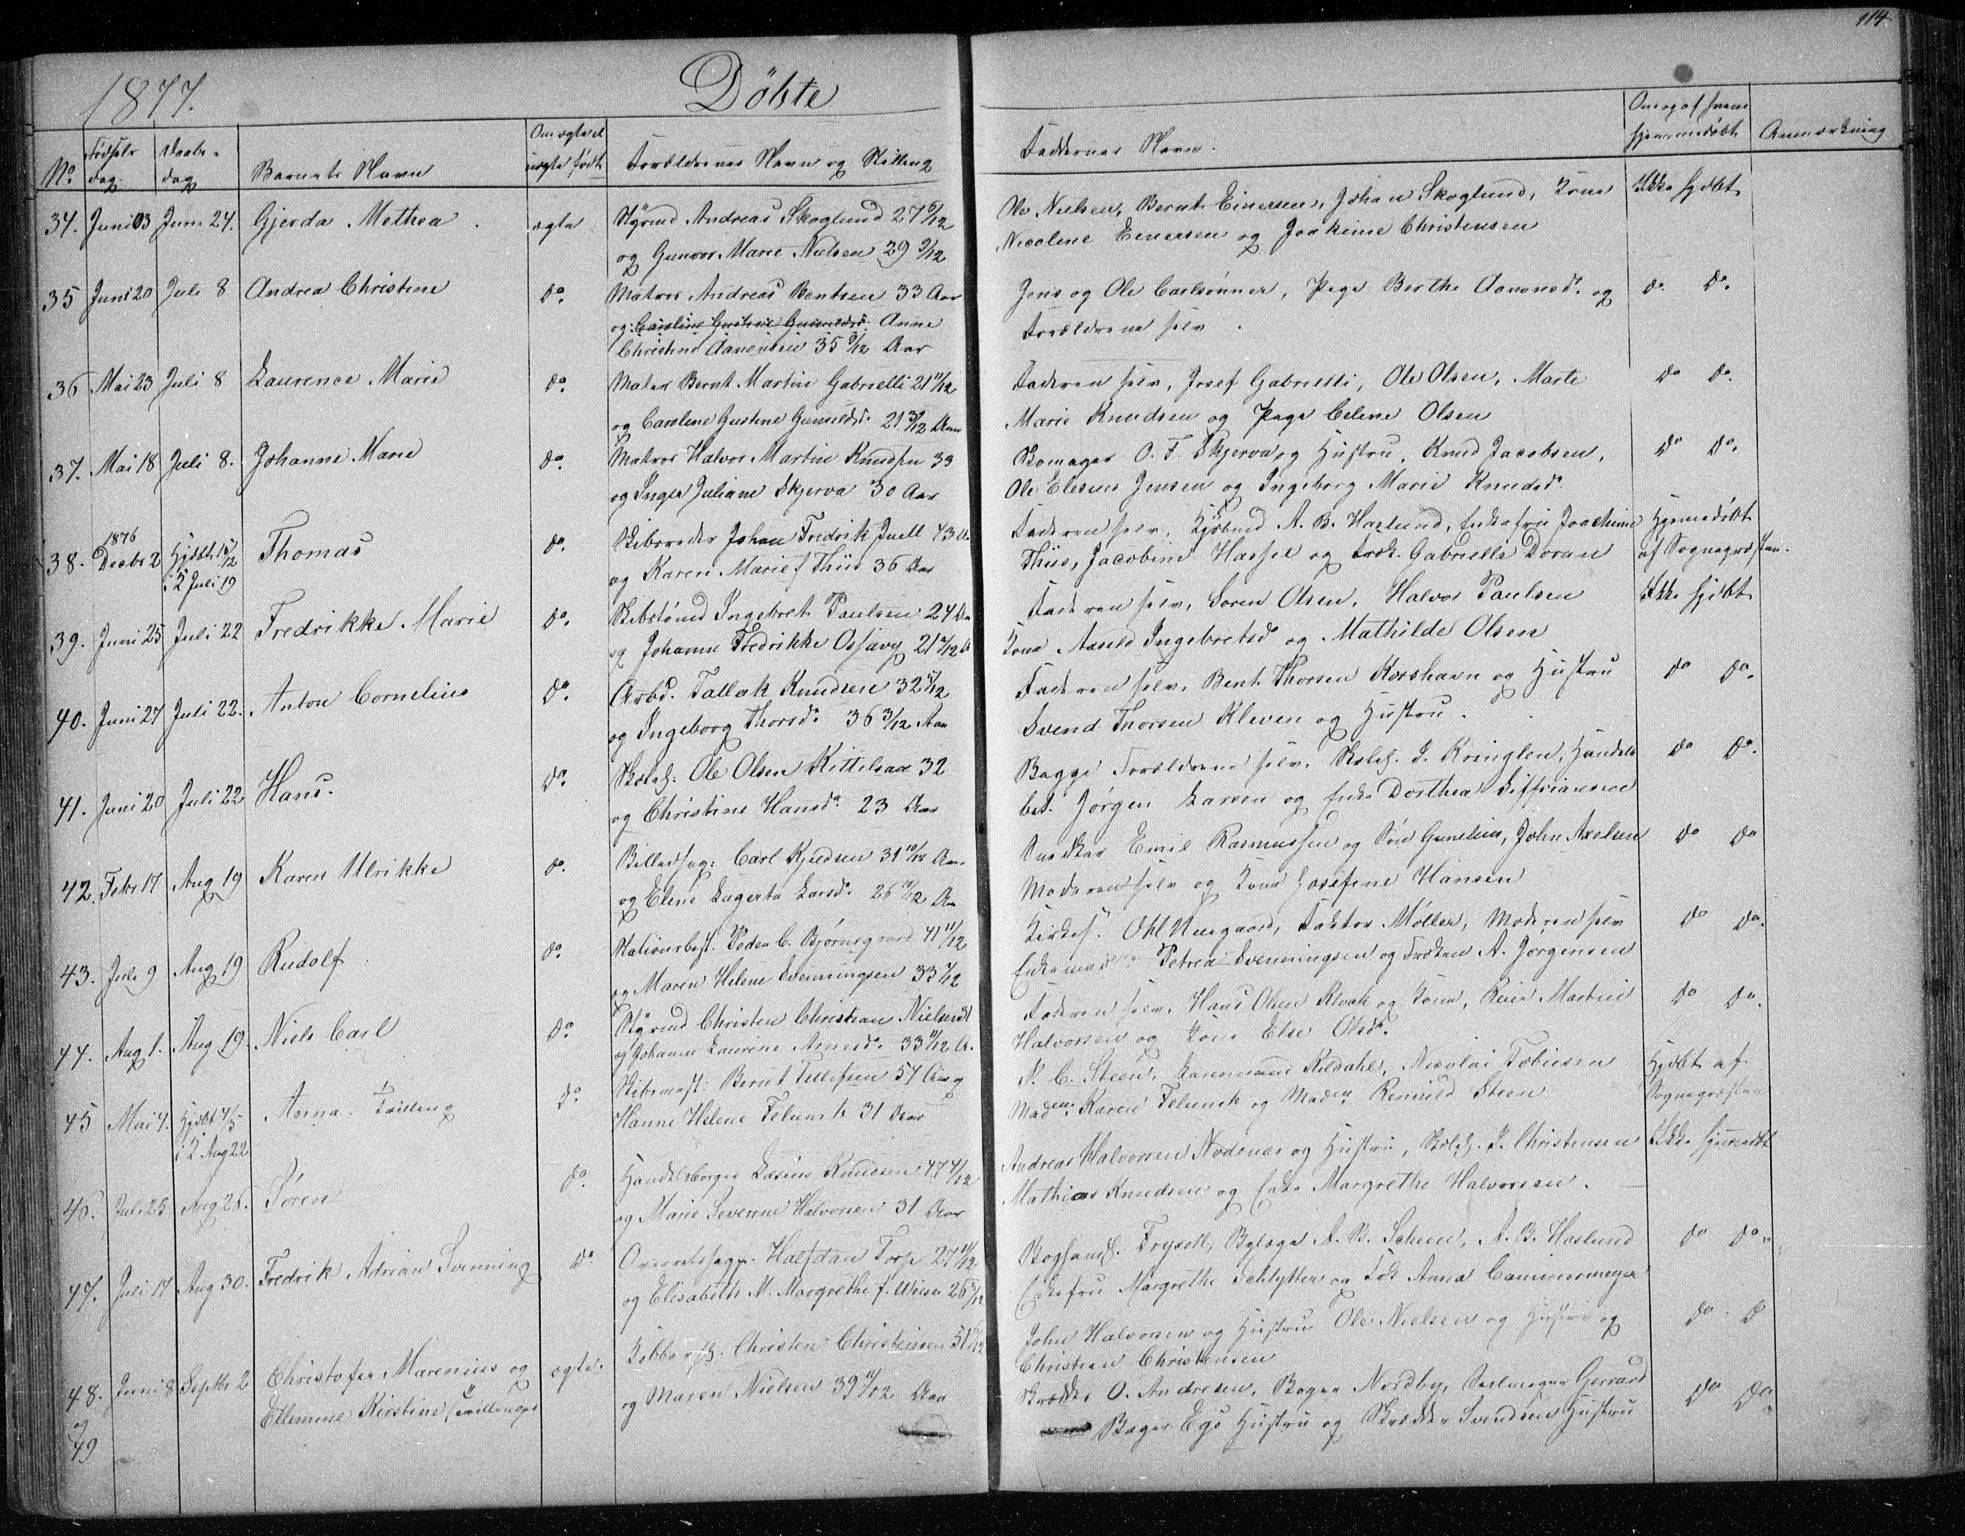 114
1877.
Döbte
No
Födsels dag
Daabs dag
Barnets Navn
Om ægte el uægte født
Forældrenes Navn og Stilling
Faddernes Navn.
Om og af hvem hjemmedøbt
Anmærkning
34. Juni 03 Juni 24. Gjerda Methea . ægte Styrmd Andreas Skoglund 27 6/12 Ole Nielsen, Bernt Einersen, Johan Skoglund, Kone Ikke hjdbt
og Gunvor Marie Nielsen 29 9/12 Nicolene Einersen og Joakime Christensen
35 Juni 20 Juli 8 Andrea Christine do. Matros Andreas Bentsen 33 Aar Jens og Ole Carlsønner, Pige Berthe Aanonsd. og do do.
og Caroline Gustine Gunuldsd. Anne Forældrene selv .
Christine Aanonsen 35 9/12 Aar
36 Mai 23 Juli 8 Laurence Marie do. Maler Bernt Martin Gabrielli 21 11/12 Faderen selv, Josef Gabrielli, Ole Olsen, Marte do do.
og Caroline Gustine Gunuldsd. 21 3/12 Aar Marie Knudsen og Pige Celine Olsen
37. Mai 18 Juli 8. Johanne Marie do. Matros Halvor Martin Knudsen 33 Skomager O. T. Skjerva og Hustru, Knud Jacobsen, do do.
og Inger Juliane Skjerva 30 Aar Ole Elesius Jensen og Ingeborg Marie Knudsd.
38. 1876 Decbr 2 Hjdbt 15/12 i K Juli 19 Thomas do. Skibsreder Johan Fredrik Juell 43 A Faderen selv, Kjøbmd A. B. Haslund, Enkefru Joachime Hjemmedøbt
og Karen Marie f Thiis 36 Aar Thiis, Jacobine Hassel og Frøk. Gabrielle Doran af Sognepræsten.
39. Juni 25 Juli 22 Fredrikke Marie do. Skibstømd Ingebret Paulsen 24 Aar Faderen selv, Soren Olsen, Halvor Paulsen Ikke hjdbt
og Johanne Fredrikke Ossavy 21 7/12 A Kone Aaseld Ingebretsd. og Mathilde Olsen
40. Juni 27 Juli 22. Anton Cornelius do. Arbd. Tallak Knudsen 32 5/12 Faderen selv, Bent Thorsen Korshavn og Hustru do do.
og Ingeborg Thorsd. 36 3/12 Aar Svend Thorsen Kleven og Hustru .
41. Juni 20 Juli 22 Hans. do. Skolel. Ole Olsen Kittelsaa 32 Begge Forældrene selv, Skolel. J. Kringlen, Handels do do.
og Christine Hansd. 23 Aar bet. Jørgen Larsen og Enke Dorthea
42. Febr 17 Aug 19 Karen Ulrikke do. Billedhug: Carl Kjeldsen 31 10/12 Aar Snedker Emil Rasmussen og Søn Gunelius, John Axelsen do do
og Elene Lagerta Larsd. 26 10/12 Aar Moderen selv og Kone Josefine Hansen
43. Juli 9 Aug 19 Rudolf . do. Stationsbest. Peder C. Bjørnsgaard 41 11/12 Kirkes. Ohl Nuegaard, Faktor Møller, Moderen selv do do.
og Maren Helene Svenningsen 33 7/12 Enkemad. Petrea Svenningsen og Frøken A. Jørgensen
44. Aug 1. Aug 19. Niels Carl do. Styrmd Christen Christian Nielsen Faderen selv, Hans Olsen Klvak og Kone, Reier Martin do do.
og Johanne Laurine Arnesd. 33 11/12 A. Halvorsen og Kone Else Olsd.
45 Mai 4. Hjdbt 7/5 i K Aug 22 Anna. Tvilling do. Skibsmest: Bernt Tellefsen 57 Aar og N. C. Steen, Kaunmand Kildahl, Nicolai Tobiesen Hjdbt af
Hanne Helene Felunck 31 Aar Madm. Karen Felunck og Madm. Reinuld Steen Sognepræsten
46. Juli 25 Aug 26. Søren do. Handelsborger Lasius Knudsen 47 4/12 Andreas Halvorsen Nodenes og Hustru, Skolel. J. Christensen Ikke hjemmedbt
og Marie Severine Halvorsen 31 Aar Mathias Knudsen og Enke Margrethe Halvorsen .
47. Juli 17 Aug 30. Fredrik Adrian Svenning do Overretssagf. Halfdan Torp 27 11/12 Boghandl. Frysell, Bylæge A. B. Scheen, A. B. Haslund do do.
og Elisabeth M. Margrethe f. Wiese 26 5/12 Enkefru Margrethe Schlytter og Frk Anna Cammermeyer
48. og 49 Juni 8 Septbr 2 Christofer Marenius og ægte. Kobbersl. Christen Christensen 51 9/12 John Halvorsen og Hustru Ole Nielsen og Hustru og do. do
Ellemine Kirstine (tvillinger og Maren Nielsen 39 11/12 Aar Christian Christensen
Skrædder O. Andresen, Bager Nordby, Seilmager Gerrard do do.
Bager Egs Hustru og Skrædder Svendsens Hustru